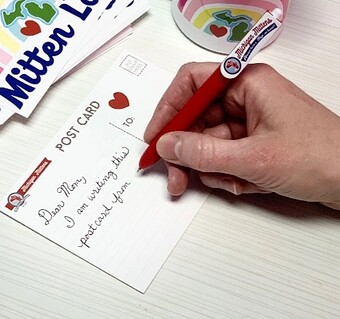 Mitten Lo
POST CARD
TO:
Michigan Mittens
Dear Mom,
I am writing this
postcard from
Michigan Mittens